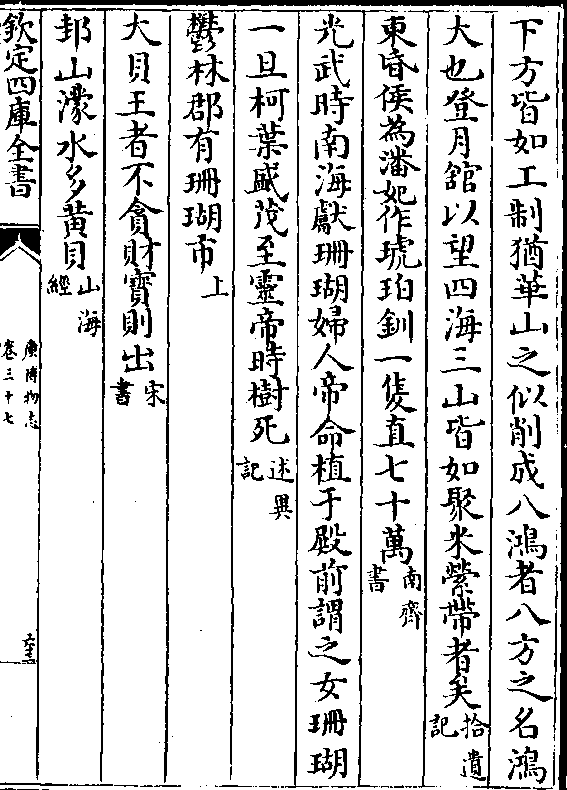 下方皆如工制猶華山之似削成八鴻者八方之名鴻
大也登月舘以望四海三山皆如聚米縈帶者矣拾遺記
東昏侯為潘妃作琥珀釧一隻直七十萬南齊書
光武時南海獻珊瑚婦人帝命植于殿前謂之女珊瑚
一旦柯葉盛茂至靈帝時樹死述異記
鬱林郡有珊瑚市上
大貝王者不貪財寳則出宋書
邽山濛水多黄貝山海經
欽定四庫全書
廣博物志
卷三十七